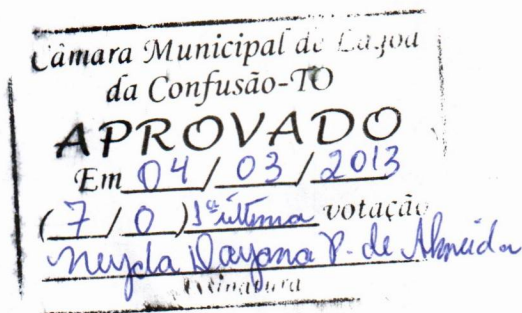 Câmara Municipal de Lagoa
da Confusão-TO
APROVADO
Em 04 / 03 / 2013
( 7 / 0 ) 1ª última votação
Neyda Dayana P. de Almeida
Assinatura